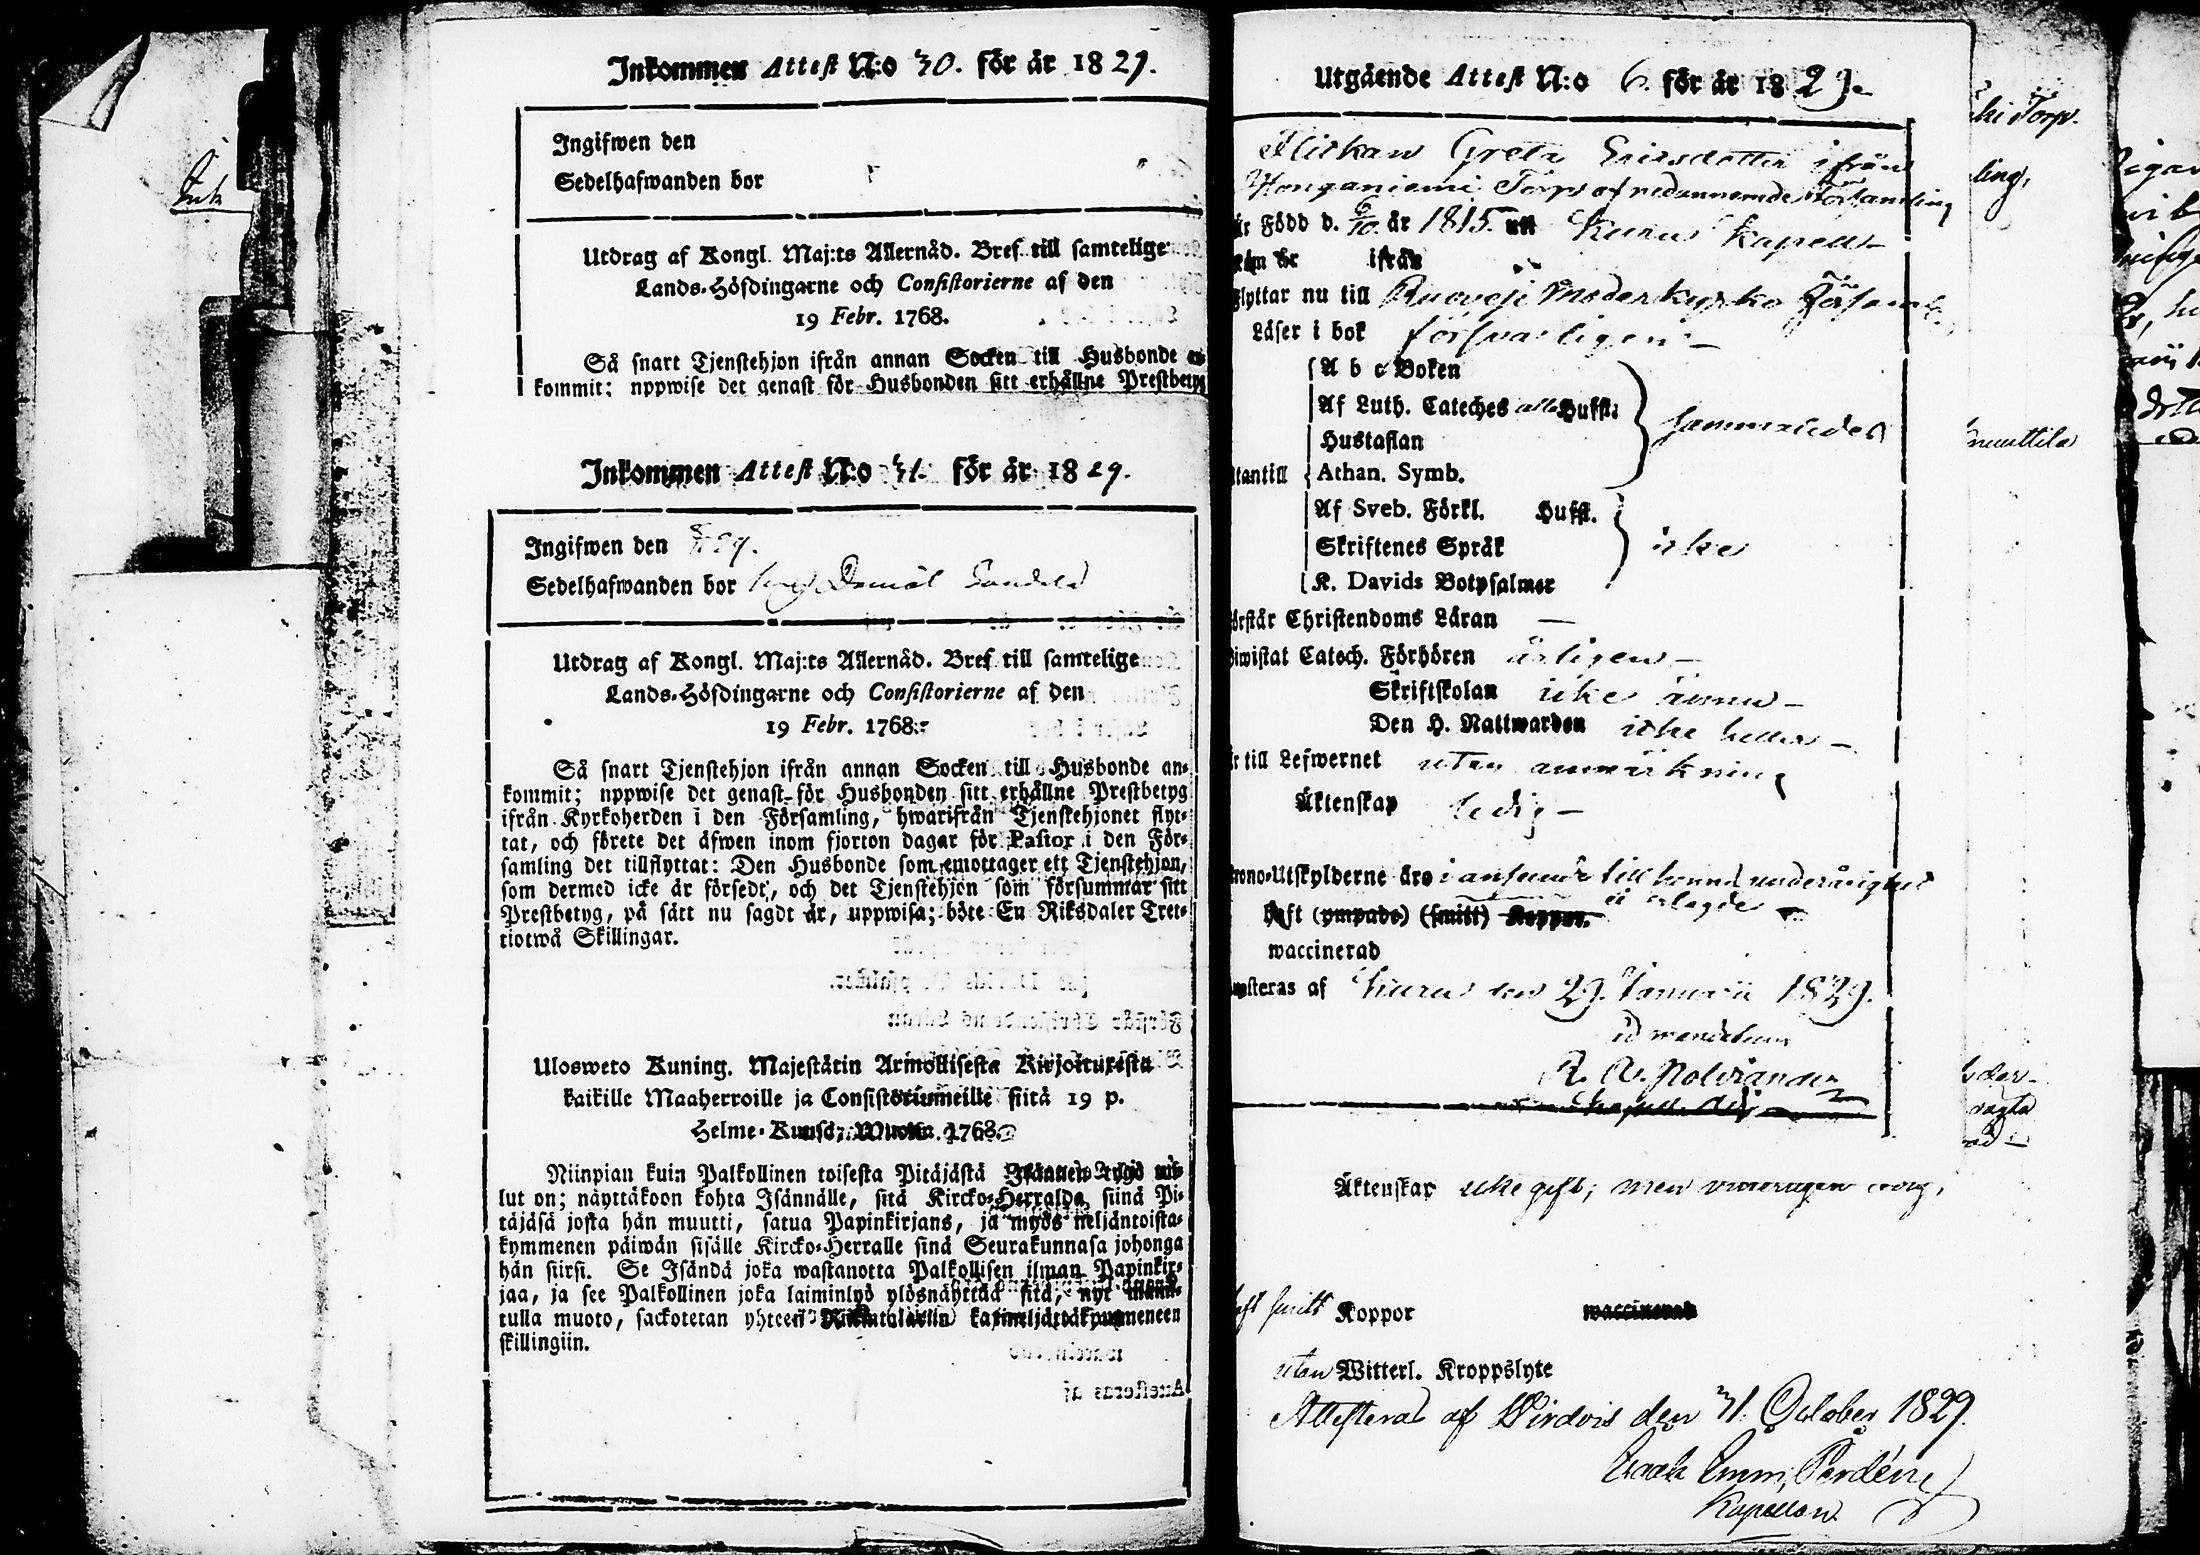 Inkommen Attest N:o 30. för år 1829.
Ingifwen den
Sedelhafwanden bor
Utdrag af Kongl. Maj:ts Allernåd. Bref till samtelige
Lands-Höfdingarne och Consistorierne af den
19 Febr. 1768.
Så snart Tjenstehjon ifrån annan Socken till Husbonde an
kommit; uppwise det genast för Husbonden sitt erhållne Prestbetyg
Inkommen Attest N:o 31. för år 1829.
Ingifwen den 29.
Sedelhafwanden bor Daniel
Utdrag af Kongl. Maj:ts Allernåd. Bref till samtelige
Lands-Höfdingarne och Consistorierne af den
19 Febr. 1768.
Så snart Tjenstehjon ifrån annan Socken till Husbonde an-
kommit; uppwise det genast för Husbonden sitt erhållne Prestbetyg
ifrån Kyrkoherden i den Församling, hwarifrån Tjenstehjonet flyt-
tat, och förete det äfwen inom fjorton dagar för Pastor i den För-
samling det tillflyttat: Den Husbonde som emottager ett Tjenstehjon,
som dermed icke är försedt, och det Tjenstehjon som försummar sitt
Prestbetyg, på sätt nu sagdt är, uppwisa; böte En Riksdaler Tret-
tiotwå Skillingar.
Ulosweto Kuning. Majestätin Armollisesta Kirjoituxesta
kaikille Maaherroille ja Consistoriumeille siitä 19 p.
Helme-Kuusa, Wuonna 1768.
Niinpian kuin Palkollinen toisesta Pitäjästä Isännen tygö tul-
lut on; näyttäköön kohta Isännälle, sitä Kircko-Herralda siinä Pi-
täjäsä josta hän muutti, satua Papinkirjans, ja myös neljäntoista-
kymmenen päiwän sisälle Kircko-Herralle sinä Seurakunnasa johonga
hän siirsi. Se Isändä joka wastanotta Palkollisen ilman Papinkir-
jaa, ja see Palkollinen joka laiminlyö ylösnäyttää sitä, nyt mainit-
tulla muoto, sackotetan yhteen Rikintalariin kaxineljättäkymmeneen
skillingiin.
Utgående Attest N:o 6. för år 1829.
Flickan Greta Ericsdotter ifrån
Honganiemi Torp af nedannemde Församling
är Född d. 6/10 år 1815. uti Kuru Kapell
från år ifrån
flyttar nu till Ruovesi Moderkyrko Församl.
Läser i bok försvarligen
A b c Boken
Af Luth. Cateches alla Hufst.
Hustaflan
utantill Athan. Symb.
sammaledes
Af Sveb. Förkl. Hufst.
Skriftenes Språk
K. Davids Botpsalmer
icke
förstår Christendoms Läran —
biwistat Catech. Förhören årligen —
Skriftskolan icke ännu —
Den H. Nattwarden icke heller —
är till Lefwernet utan anmärkning
Äktenskap ledig —
Krono-Utskylderne äro i anseende till hennes underårighet
ej erlagde
haft (ympade) (smitt) Koppor.
waccinerad
Attesteras af Kuru den 29. Januarii 1829.
id mandatum
Äktenskap icke gift; men
haft smitt Koppor waccinerad
utan Witterl. Kroppslyte
Attesteras af Wirdois den 31. October 1829.
Isaak Emm.
Kapellan